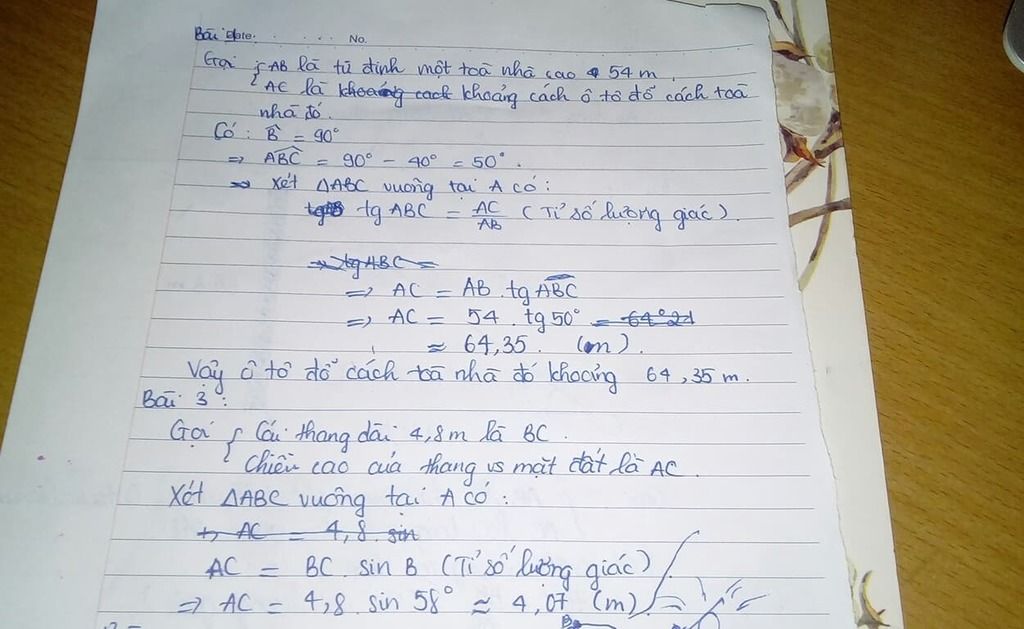 Bài Date. . . . . . . No.
Gọi { AB là từ đỉnh một toà nhà cao 54 m.
{ AC là khoảng cách khoảng cách ô tô đỗ cách toà
nhà đó.
Có : B̂ = 90°
=> ABC = 90° - 40° = 50°.
=> Xét ΔABC vuông tại A có :
tgB tg ABC = AC/AB (Tỉ số lượng giác).
=> tg ABC =
=> AC = AB . tg ABC
=> AC = 54 . tg 50° = 64°21
≈ 64,35 (m).
Vậy ô tô đỗ cách toà nhà đó khoảng 64,35 m.
Bài 3 :
Gọi { Cái thang dài 4,8m là BC.
{ Chiều cao của thang vs mặt đất là AC.
Xét ΔABC vuông tại A có :
=> AC = 4,8 sin
AC = BC . sin B (Tỉ số lượng giác)
=> AC = 4,8 . sin 58° ≈ 4,07 (m)